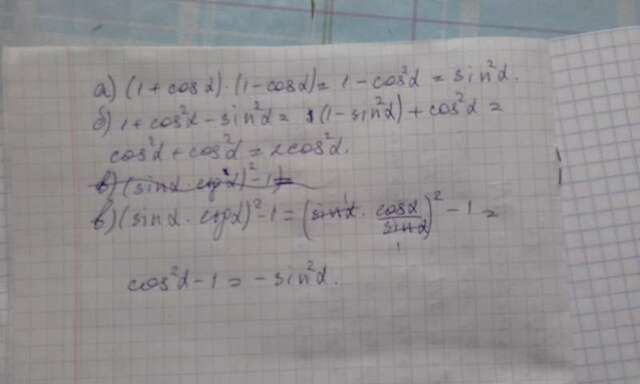 а) (1 + cos α) · (1 - cos α) = 1 - cos²α = sin²α.
б) 1 + cos²α - sin²α = (1 - sin²α) + cos²α =
cos²α + cos²α = 2cos²α.
в) (sin α · ctg α)² - 1 =
в) (sin α · ctg α)² - 1 = (sin α · cos α / sin α)² - 1 =
cos²α - 1 = - sin²α.